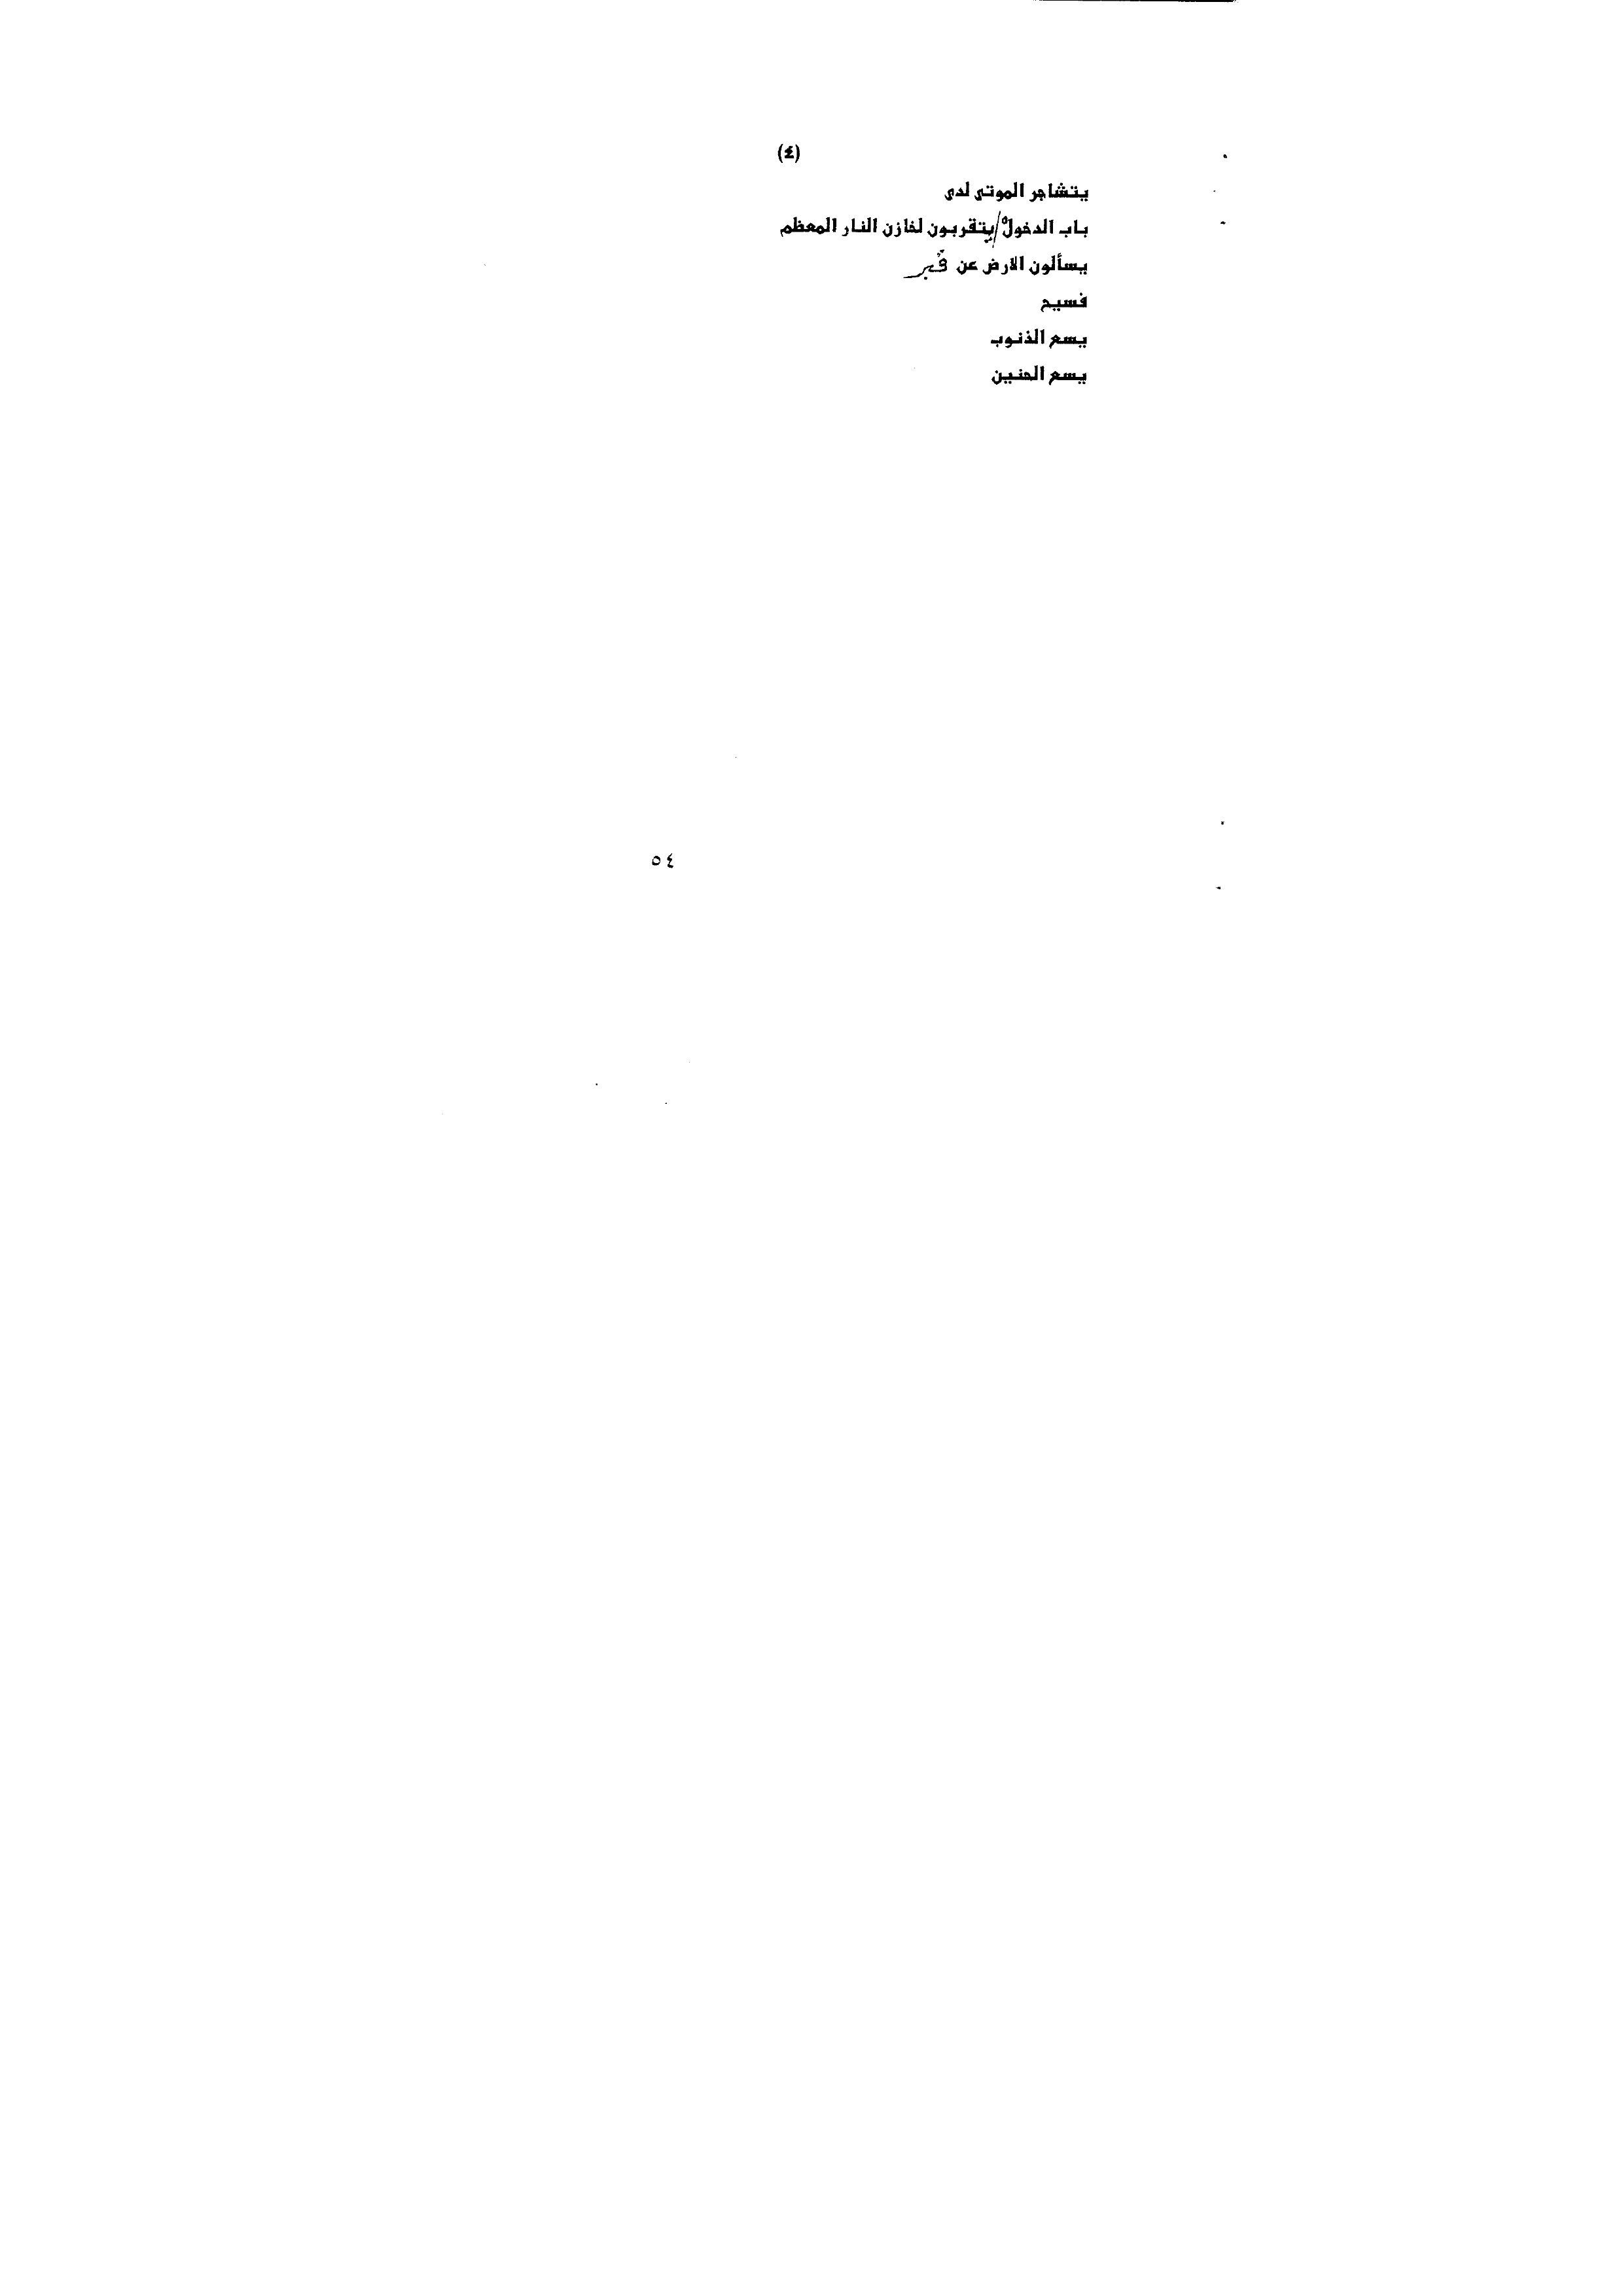 (٤)
يتشاجر الموتى لدى
باب الدخول / يتقربون لخازن النار المعظم
يسألون الارض عن قبر
فسيح
يسع الذنوب
يسع الحنين
٥٤